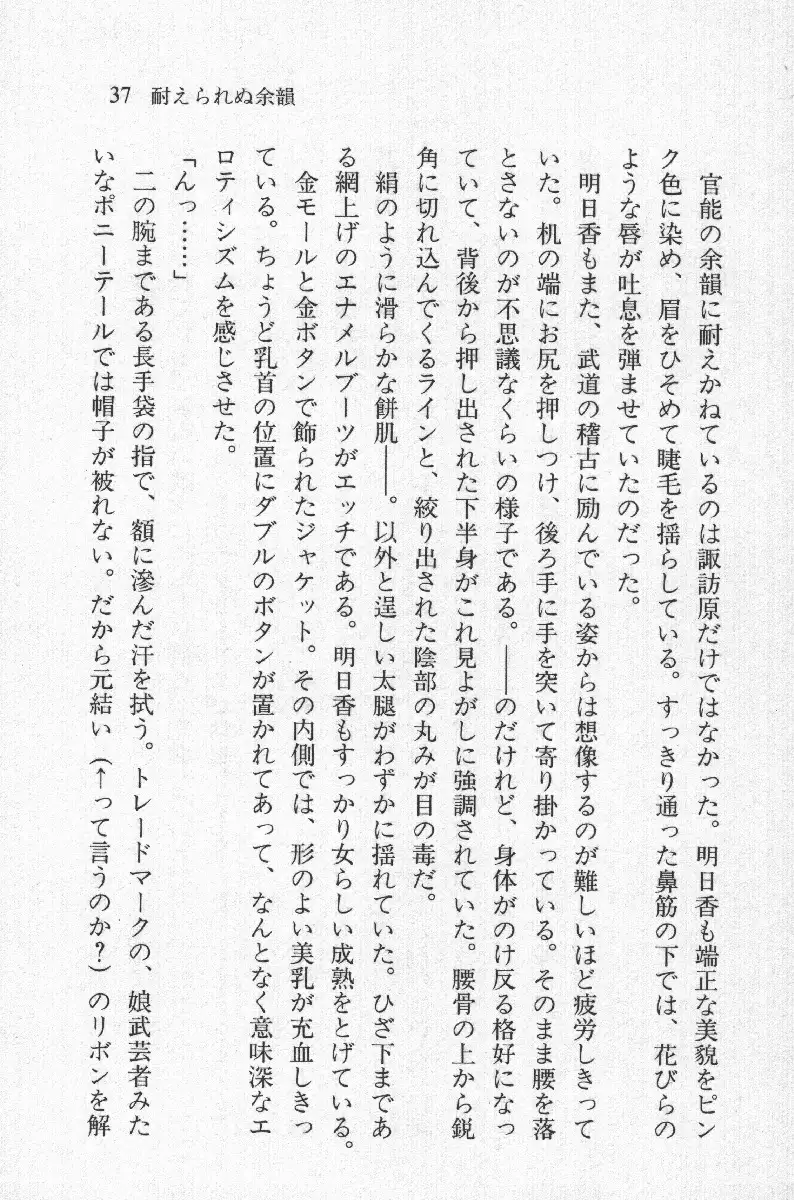 37 耐えられぬ余韻
官能の余韻に耐えかねているのは諏訪原だけではなかった。明日香も端正な美貌をピン
ク色に染め、眉をひそめて睫毛を揺らしている。すっきり通った鼻筋の下では、花びらの
ような唇が吐息を弾ませていたのだった。
明日香もまた、武道の稽古に励んでいる姿からは想像するのが難しいほど疲労しきって
いた。机の端にお尻を押しつけ、後ろ手に手を突いて寄り掛かっている。そのまま腰を落
とさないのが不思議なくらいの様子である。――のだけれど、身体がのけ反る格好になっ
ていて、背後から押し出された下半身がこれ見よがしに強調されていた。腰骨の上から鋭
角に切れ込んでくるラインと、絞り出された陰部の丸みが目の毒だ。
絹のように滑らかな餅肌――。以外と逞しい太腿がわずかに揺れていた。ひざ下まであ
る網上げのエナメルブーツがエッチである。明日香もすっかり女らしい成熟をとげている。
金モールと金ボタンで飾られたジャケット。その内側では、形のよい美乳が充血しきっ
ている。ちょうど乳首の位置にダブルのボタンが置かれてあって、なんとなく意味深なエ
ロティシズムを感じさせた。
「んっ……」
二の腕まである長手袋の指で、額に滲んだ汗を拭う。トレードマークの、娘武芸者みた
いなポニーテールでは帽子が被れない。だから元結い（↑って言うのか？）のリボンを解